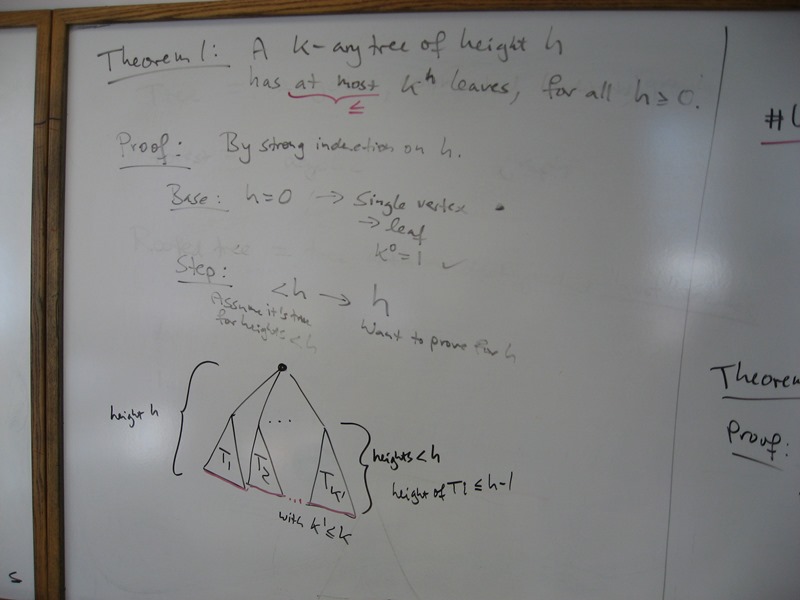 Theorem 1: A k-ary tree of height h
has at most kʰ leaves, for all h ≥ 0.
≤
Proof: By strong induction on h.
Base: h=0 → Single vertex
→ leaf
k⁰=1 ✓
Step: <h → h
Assume it is true
for heights < h
Want to prove for h
height h
T1 T2 ... Tk'
...
heights < h
height of T1 ≤ h-1
with k' ≤ k
Theorem
Proof:
S